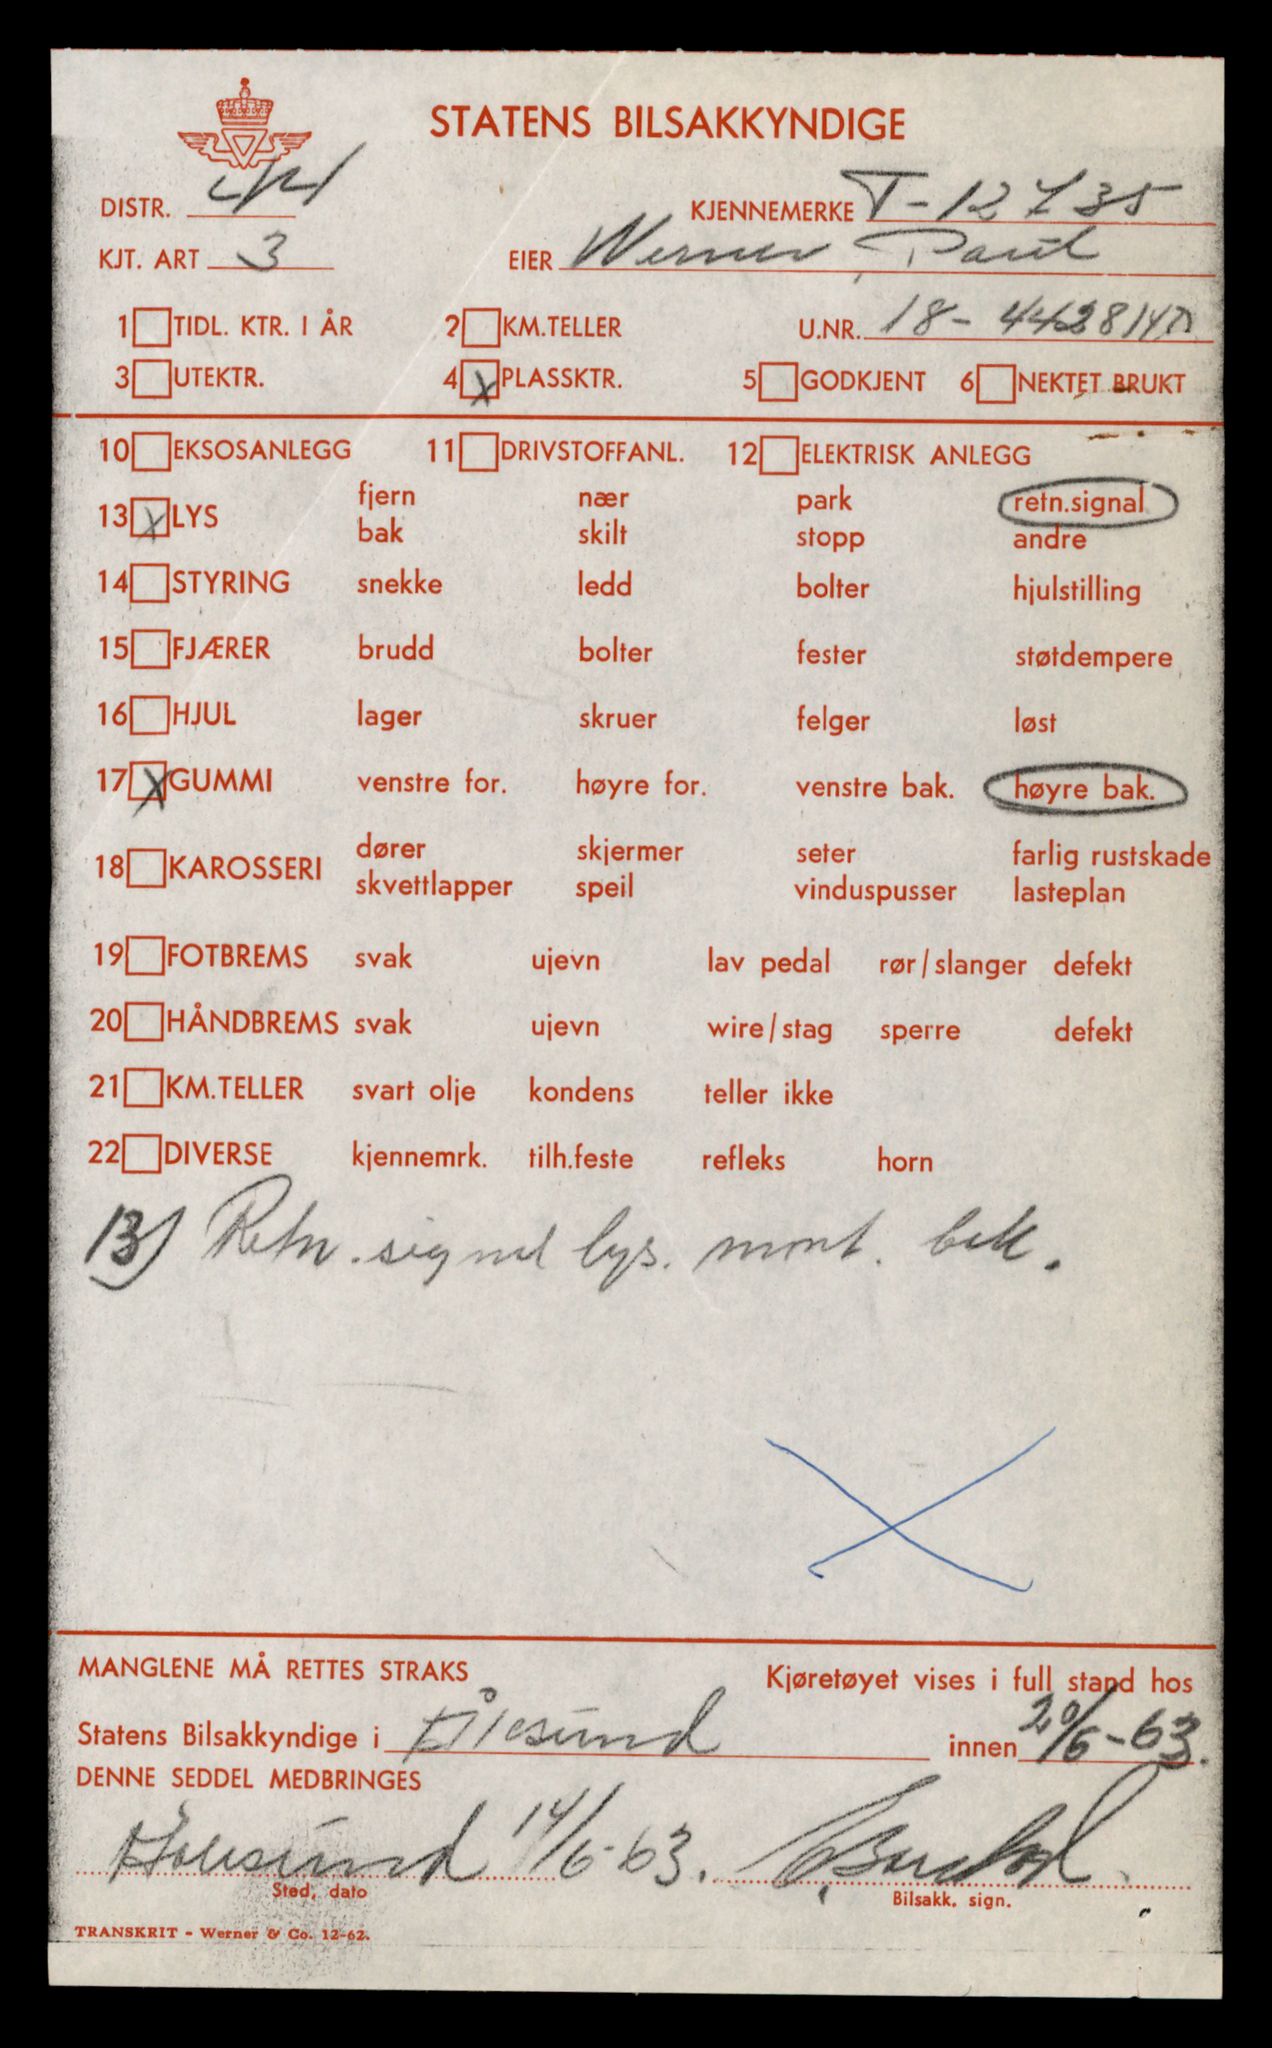 STATENS BILSAKKYNDIGE
DISTR.
KJENNEMERKE T-12735
KJT. ART 3 EIER Werner, Paul
1 TIDL. KTR. I ÅR 2 KM.TELLER U.NR. 18-
3 UTEKTR. 4 X PLASSKTR. 5 GODKJENT 6 NEKTET BRUKT
10 EKSOSANLEGG 11 DRIVSTOFFANL. 12 ELEKTRISK ANLEGG
13 X LYS fjern nær park retn.signal
bak skilt stopp andre
14 STYRING snekke ledd bolter hjulstilling
15 FJÆRER brudd bolter fester støtdempere
16 HJUL lager skruer felger løst
17 X GUMMI venstre for. høyre for. venstre bak. høyre bak.
18 KAROSSERI dører skjermer seter farlig rustskade
skvettlapper speil vinduspusser lasteplan
19 FOTBREMS svak ujevn lav pedal rør/slanger defekt
20 HÅNDBREMS svak ujevn wire/stag sperre defekt
21 KM.TELLER svart olje kondens teller ikke
22 DIVERSE kjennemrk. tilh.feste refleks horn
13) Retn. signal lys. mont. bak.
MANGLENE MÅ RETTES STRAKS Kjøretøyet vises i full stand hos
Statens Bilsakkyndige i Ålesund innen 20/6-63.
DENNE SEDDEL MEDBRINGES
Ålesund 14/6-63.
Sted, dato Bilsakk. sign.
TRANSKRIT - Werner & Co. 12-62.